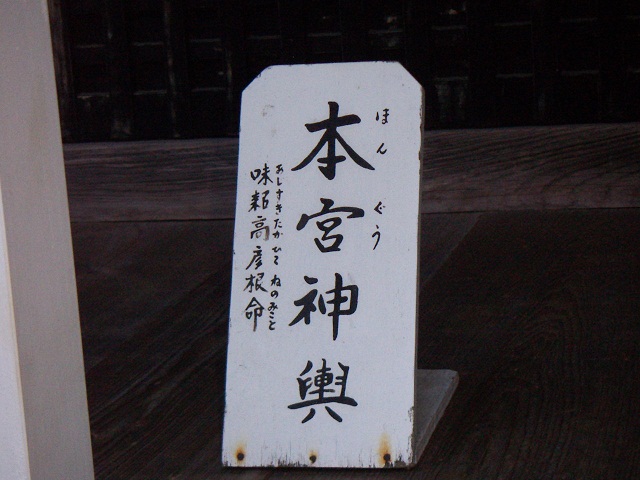 ほんぐう
本宮神輿
あじすきたかひこねのみこと
味耜高彦根命